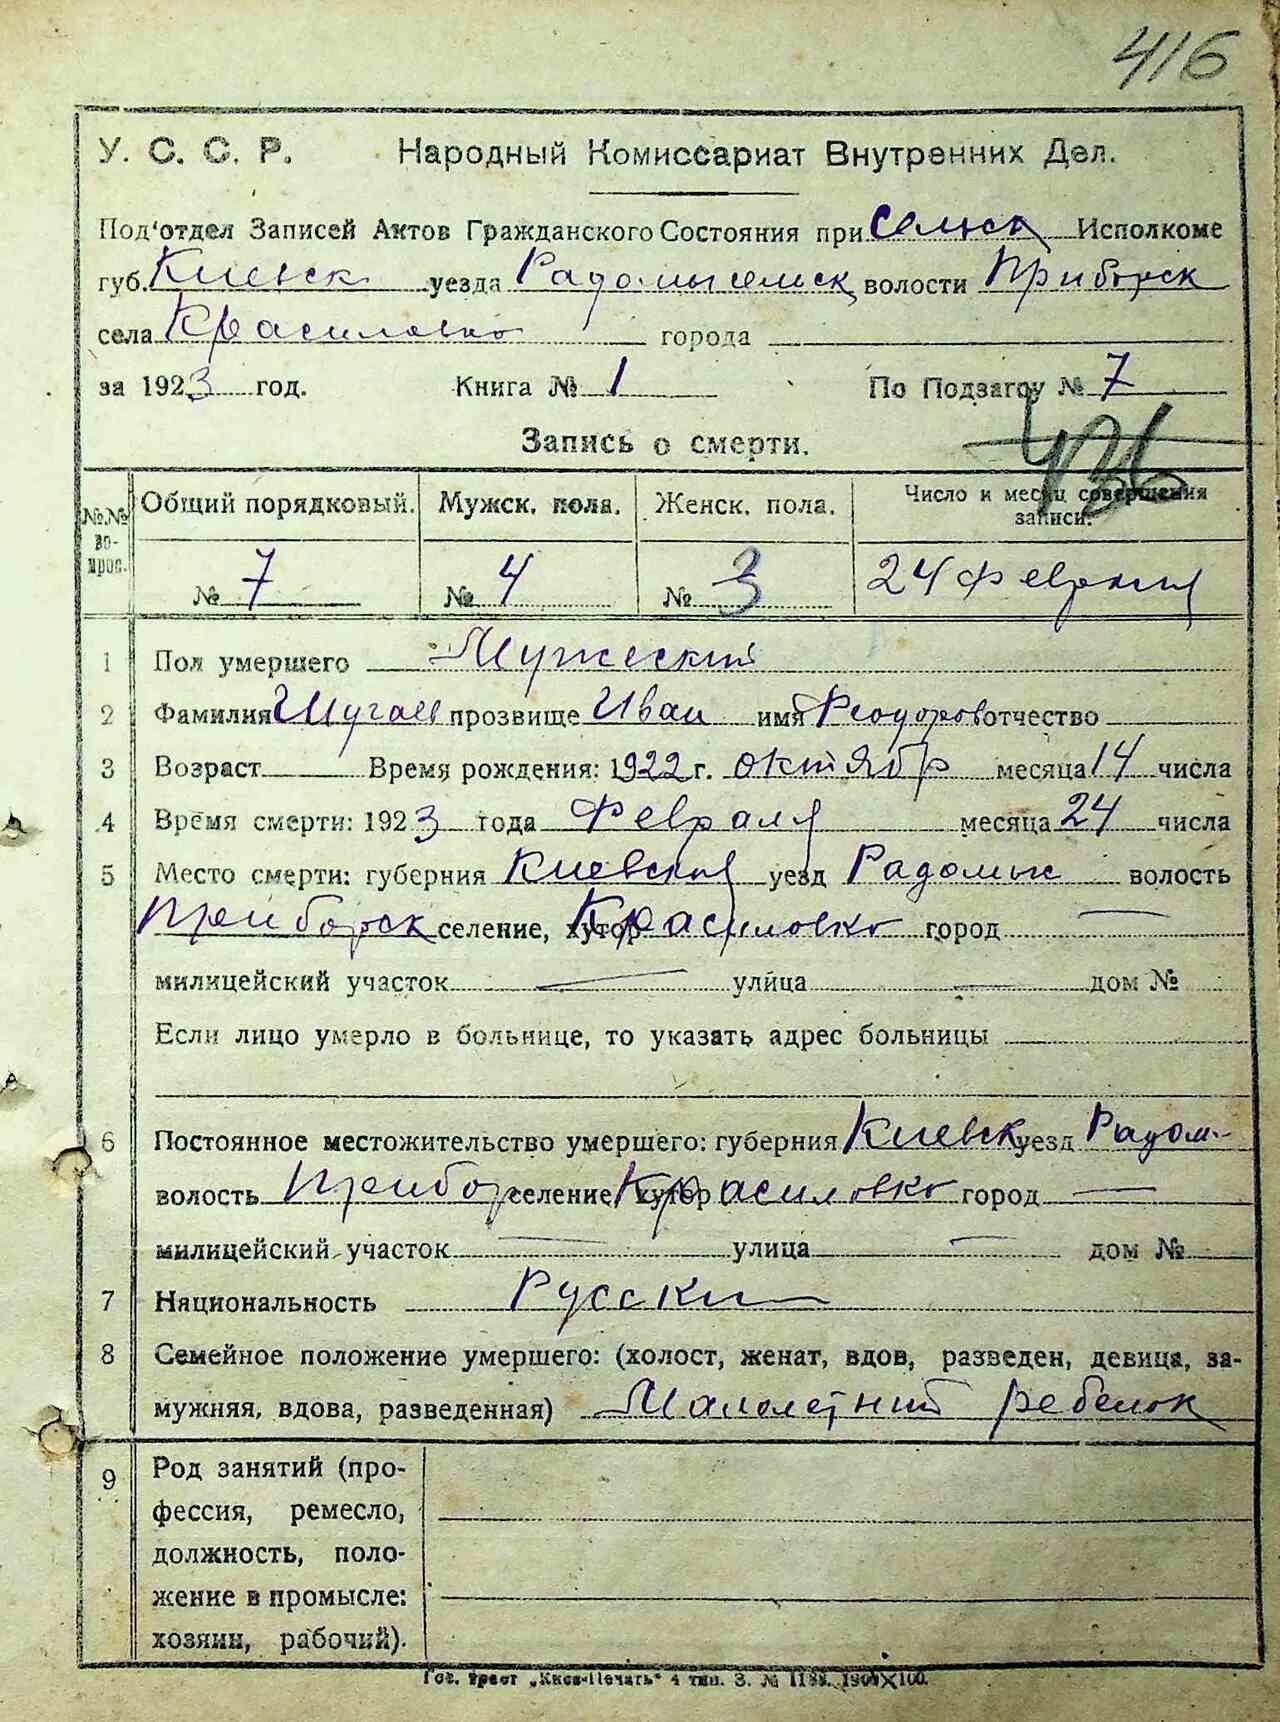 416
У. С. С. Р. Народный Комиссариат Внутренних Дел.
Под'отдел Записей Актов Гражданского Состояния при Сельск Исполкоме
губ. Киевск уезда Радомысельск волости Приборск
села Красиловко города
за 1923 год. Книга № 1 По Подзагсу № 7
Запись о смерти. 436
№№ вопрос. Общий порядковый. Мужск. пола. Женск. пола. Число и месяц совершения записи.
№ 7 № 4 № 3 24 Февраля
1 Пол умершего Мужеский
2 Фамилия прозвище Иван имя Феодоров отчество
3 Возраст Время рождения: 1922 г. октябр месяца 14 числа
4 Время смерти: 1923 года Февраля месяца 24 числа
5 Место смерти: губерния Киевская уезд Радомыс волость
Приборск селение, хутор Красиловко город —
милицейский участок — улица — дом №
Если лицо умерло в больнице, то указать адрес больницы
6 Постоянное местожительство умершего: губерния Киевск уезд Радом.
волость Прибор селение, хутор Красиловко город —
милицейский участок — улица — дом №
7 Национальность Русский
8 Семейное положение умершего: (холост, женат, вдов, разведен, девица, за-
мужняя, вдова, разведенная) Малолетний ребенок
9 Род занятий (про-
фессия, ремесло,
должность, поло-
жение в промысле:
хозяин, рабочий).
Гос. трест „Киев-Печать“ 4 тип. З. №